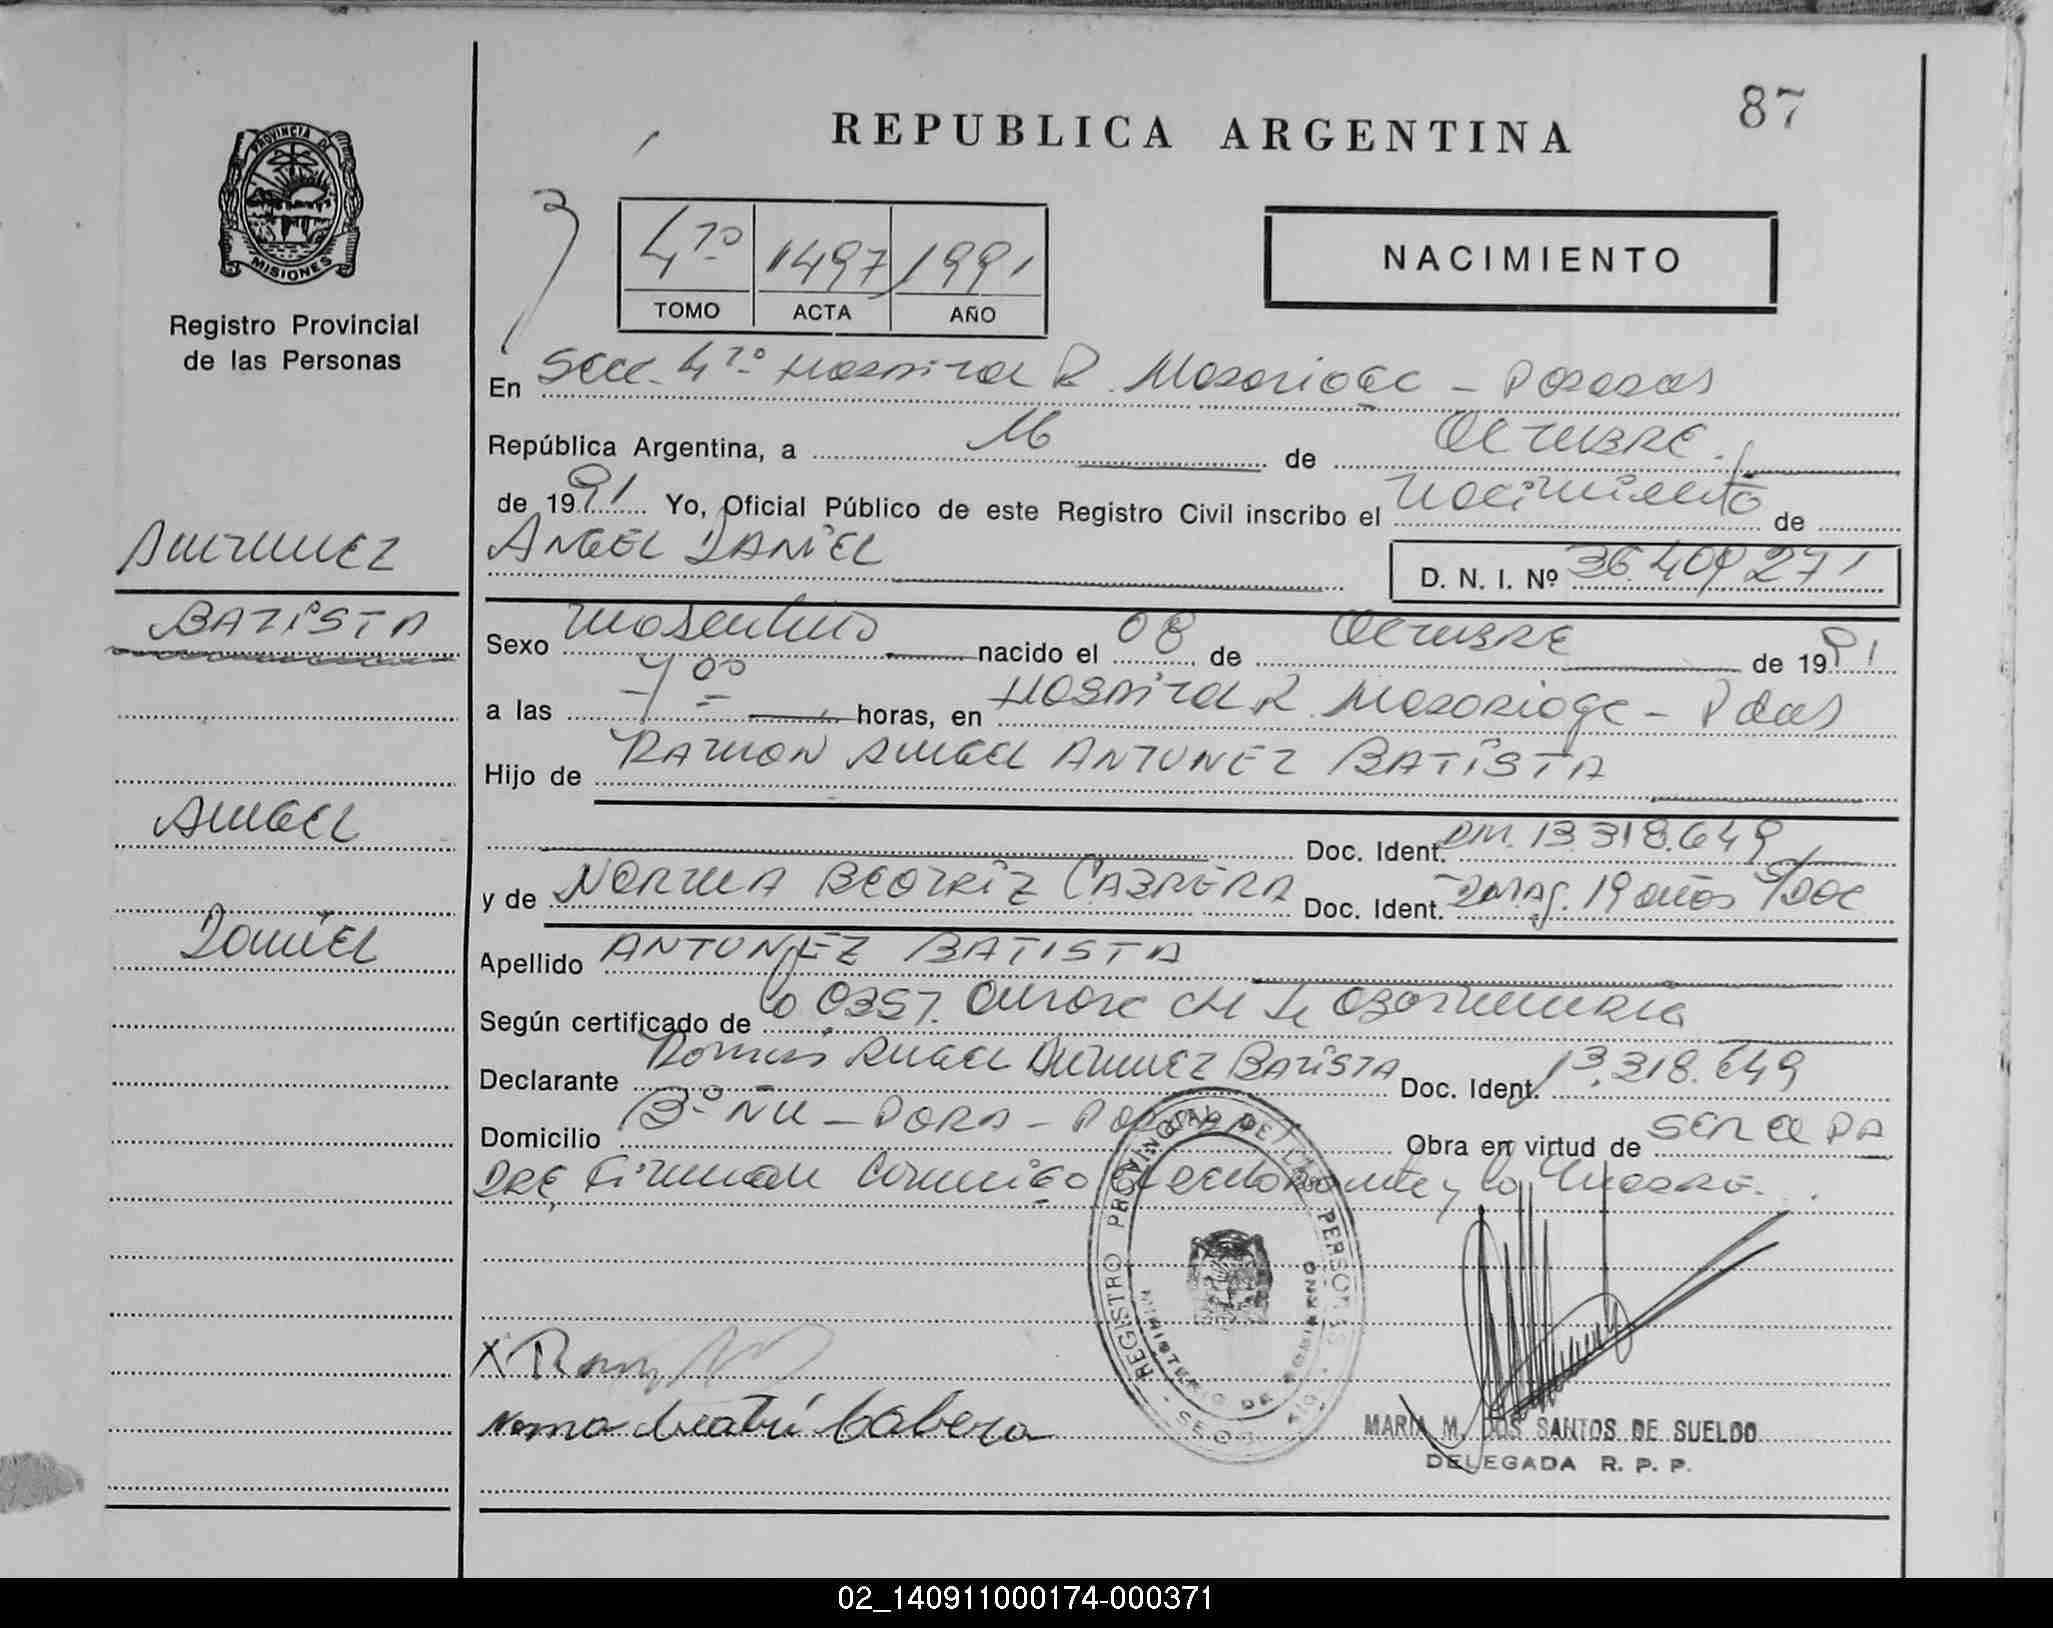 87
REPUBLICA ARGENTINA
PROVINCIA DE
MISIONES
Registro Provincial
de las Personas
4to 1497 1991
TOMO ACTA AÑO
NACIMIENTO
En Secc. 4to Hospital R. Madariaga - Posadas
República Argentina, a 16 de Octubre
de 1991 Yo, Oficial Público de este Registro Civil inscribo el nacimiento de
ANGEL DANIEL
D. N. I. Nº 36.409.271
Antunez
BATISTA
Angel
Daniel
Sexo masculino nacido el 08 de Octubre de 1991
a las 7 00 horas, en Hospital R. Madariaga - Pdas
Hijo de RAMON ANGEL ANTUNEZ BATISTA
Doc. Ident. DNI. 13.318.649
y de NORMA BEATRIZ CABRERA Doc. Ident. 19 años S/DOC
Apellido ANTUNEZ BATISTA
Según certificado de Obstetricia
Declarante Ramon Angel Antunez BATISTA Doc. Ident. 13.318.649
Domicilio Bº ÑU - PORA - Obra en virtud de SER el PA
DRE, Firman Conmigo el declarante y la Madre.
REGISTRO PROVINCIAL DE LAS PERSONAS
MINISTERIO DE GOBIERNO
X Ramon
Norma beatri Cabrera
MARIA M. DOS SANTOS DE SUELDO
DELEGADA R. P. P.
02_140911000174-000371